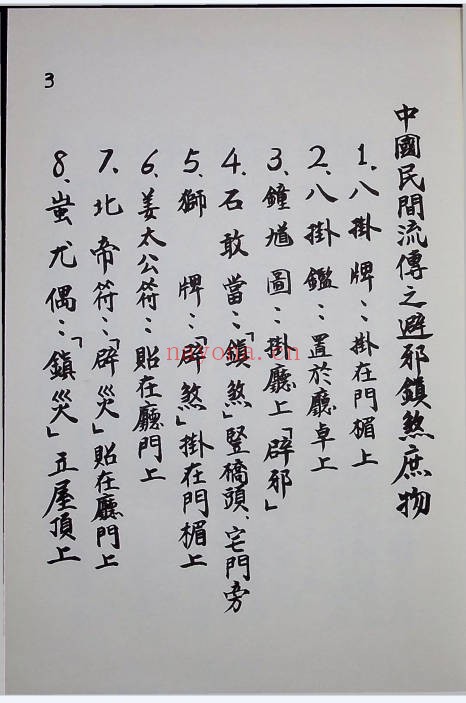 中國民間流傳之避邪鎮煞庶物
1、八掛牌：掛在門楣上
2、八掛鑑：置於廳卓上
3、鐘馗圖：掛廳上「辟邪」
4、石敢當：「鎮煞」豎橋頭、宅門旁
5、獅牌：「辟煞」掛在門楣上
6、姜太公符：貼在廳門上
7、北帝符：「辟災」貼在廳門上
8、蚩尤偶：「鎮災」立屋頂上
3
nayona.cn